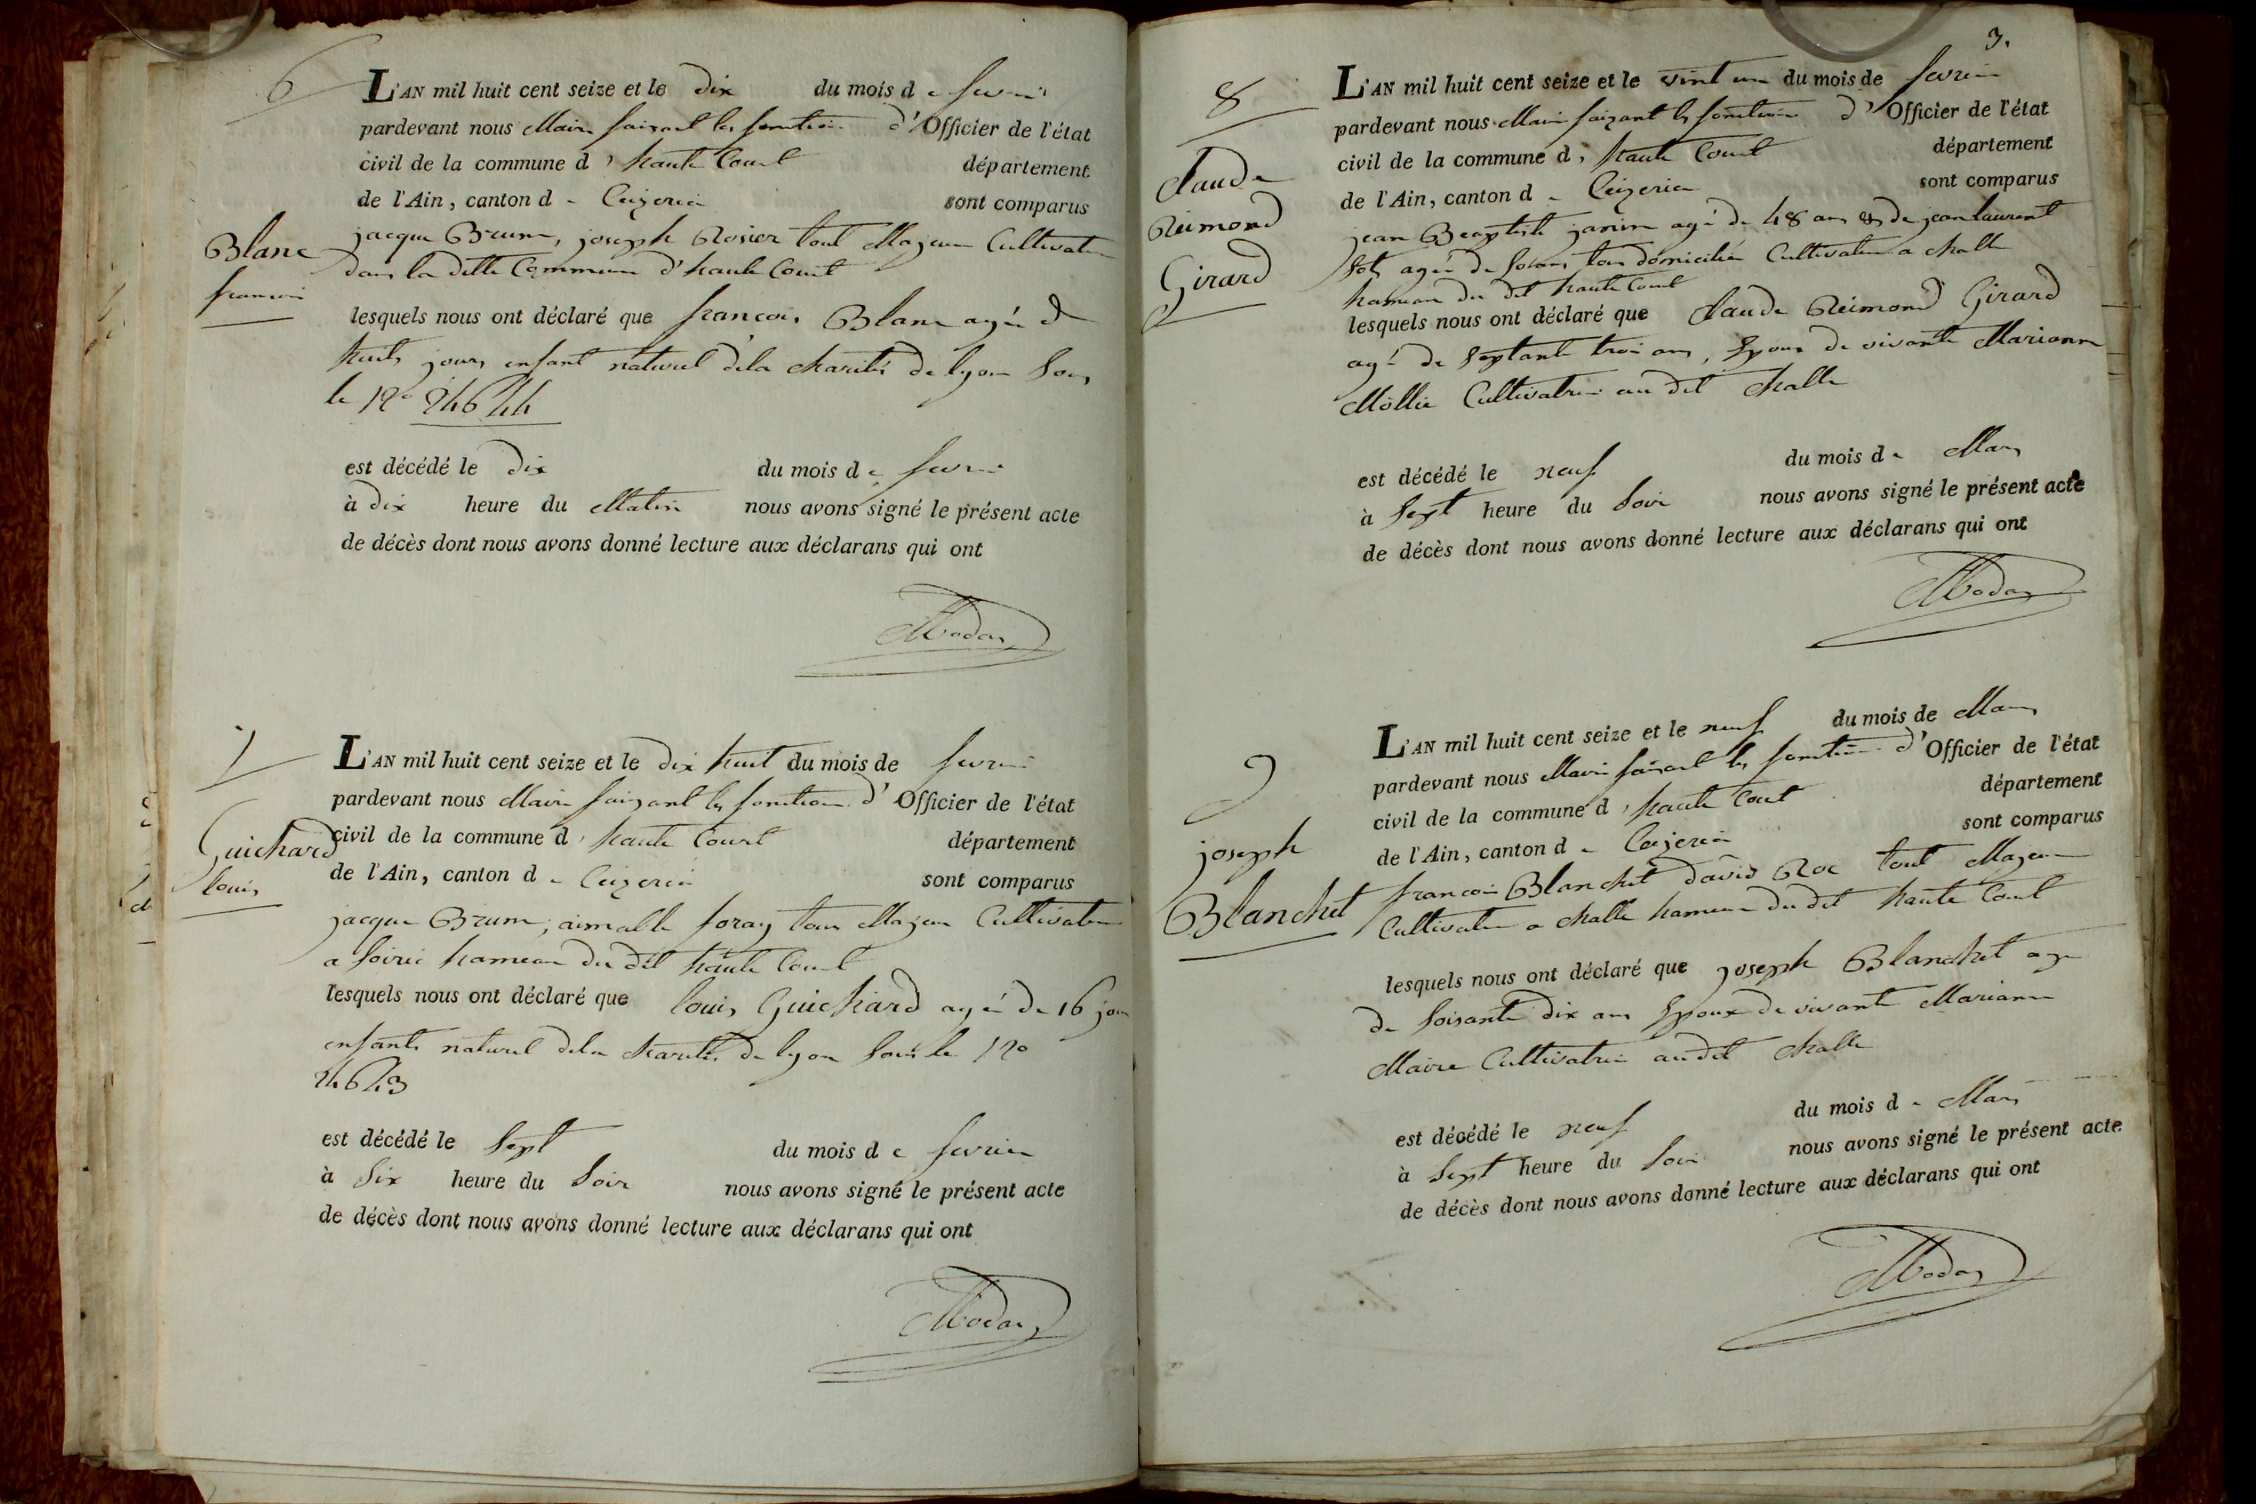 6
L'AN mil huit cent seize et le dix du mois de fevrier
pardevant nous Maire faisant les fonctions d'Officier de l'état
civil de la commune d'haute Court département
de l'Ain, canton de Ceizeria sont comparus
Blanc
francois
jacque Brun, joseph Rosier tout Majeur Cultivateur
dans la ditte Commune d'haute Court
lesquels nous ont déclaré que francois Blanc agée de
huits jours enfant naturel dela charité de lyon sous
le No 24644
est décédé le dix du mois de fevrier
à dix heure du Matin nous avons signé le présent acte
de décès dont nous avons donné lecture aux déclarans qui ont
7
Guichard
louis
L'AN mil huit cent seize et le dix huit du mois de fevrier
pardevant nous Maire faisant les fonctions d'Officier de l'état
civil de la commune d'haute Court département
de l'Ain, canton de Ceizeria sont comparus
jacque Brun, aimable foray tous Majeur Cultivateur
a hameau du dit haute Court
lesquels nous ont déclaré que louis Guichard agée de 16 jour
enfants naturel dela charité de lyon sous le No
24643
est décédé le Sept du mois de fevrier
à Six heure du Soir nous avons signé le présent acte
de décès dont nous avons donné lecture aux déclarans qui ont
3.
8
Claude
Reimond
Girard
L'AN mil huit cent seize et le vint un du mois de fevrier
pardevant nous Maire faisant les fonctions d'Officier de l'état
civil de la commune d'haute Court département
de l'Ain, canton de Ceizeria sont comparus
jean Beaptiste janin agé de 48 ans & de jean laurent
agée de tous domicilié Cultivateur a challe
hameau du dit haute Court
lesquels nous ont déclaré que Claude Reimond Girard
agé de septante trois ans, Epoux de vivante Marianne
Mollie Cultivatrice au dit challe
est décédé le neuf du mois de Mars
à Sept heure du Soir nous avons signé le présent acte
de décès dont nous avons donné lecture aux déclarans qui ont
9
joseph
Blanchet
L'AN mil huit cent seize et le neuf du mois de Mars
pardevant nous Maire faisant les fonctions d'Officier de l'état
civil de la commune d'haute Court département
de l'Ain, canton de Ceizeria sont comparus
francois Blanchet david Roc tout Majeur
Cultivateur a challe hameau du dit haute Court
lesquels nous ont déclaré que joseph Blanchet age
de soisante dix ans Epoux de vivante Marianne
Maire Cultivatrice au dit challe
est décédé le neuf du mois de Mars
à Sept heure du Soir nous avons signé le présent acte
de décès dont nous avons donné lecture aux déclarans qui ont